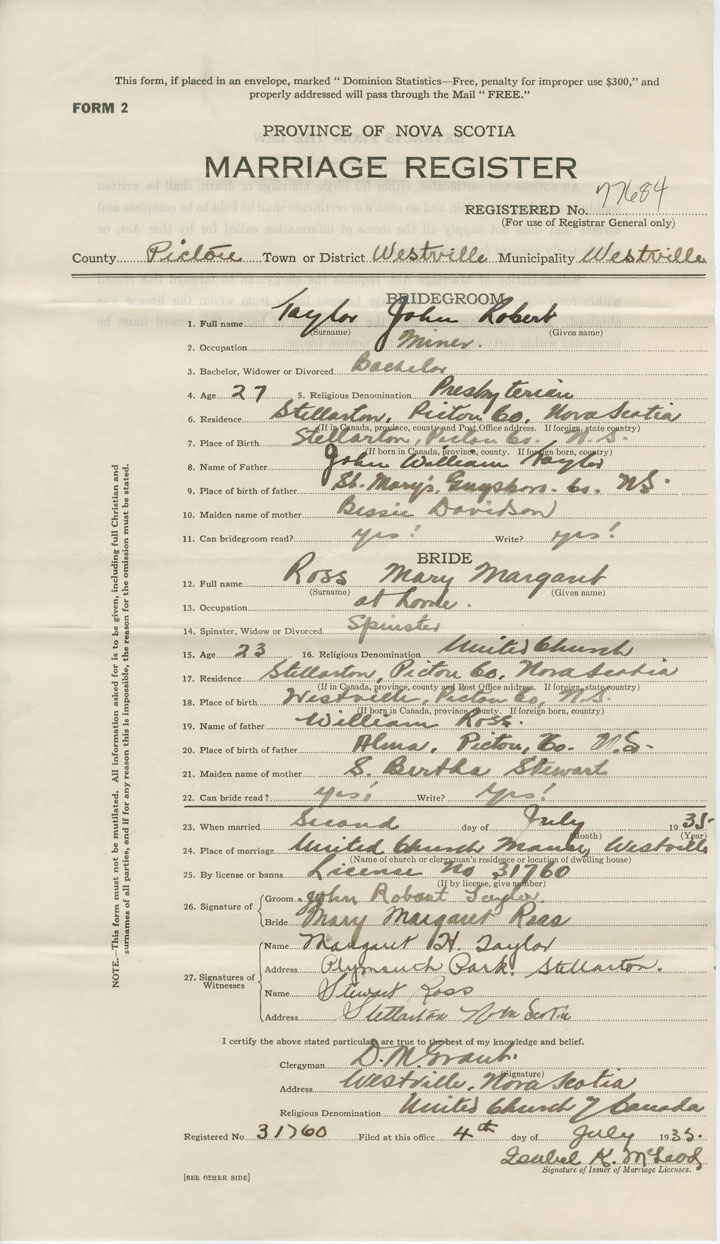 This form, if placed in an envelope, marked “ Dominion Statistics—Free, penalty for improper use $300,” and
properly addressed will pass through the Mail “ FREE.”
FORM 2
PROVINCE OF NOVA SCOTIA
MARRIAGE REGISTER
REGISTERED No. 77684
(For use of Registrar General only)
County Pictou Town or District Westville Municipality Westville
BRIDEGROOM
1. Full name Taylor John Robert
(Surname) (Given name)
2. Occupation Miner.
3. Bachelor, Widower or Divorced Bachelor
4. Age 27 5. Religious Denomination Presbyterian
6. Residence Stellarton, Pictou Co. Nova Scotia
(If in Canada, province, county and Post Office address. If foreign, state country)
7. Place of Birth Stellarton, Pictou Co. N.S.
(If born in Canada, province, county. If foreign born, country)
8. Name of Father John William Taylor
9. Place of birth of father St. Mary's, Guysboro. Co. NS.
10. Maiden name of mother Bessie Davidson
11. Can bridegroom read? yes! Write? yes!
BRIDE
12. Full name Ross Mary Margaret
(Surname) (Given name)
13. Occupation at home.
14. Spinster, Widow or Divorced Spinster
15. Age 23 16. Religious Denomination United Church
17. Residence Stellarton, Pictou Co. Nova Scotia
(If in Canada, province, county and Post Office address. If foreign, state country)
18. Place of birth Westville, Pictou Co. N.S.
(If born in Canada, province, county. If foreign born, country)
19. Name of father William Ross.
20. Place of birth of father Alma, Pictou, Co. N.S.
21. Maiden name of mother S. Bertha Stewart
22. Can bride read? yes! Write? Yes!
23. When married Second day of July 1935
(Month) (Year)
24. Place of marriage United Church Manse, Westville
(Name of church or clergyman's residence or location of dwelling house)
25. By license or banns License No 31760
(If by license, give number)
26. Signature of { Groom John Robert Taylor
Bride Mary Margaret Ross
27. Signatures of Witnesses { Name Margaret H. Taylor
Address Plymouth Park. Stellarton.
Name Stewart Ross
Address Stellarton Nova Scotia
I certify the above stated particulars are true to the best of my knowledge and belief.
Clergyman D. M. Grant.
(Signature)
Address Westville, Nova Scotia
Religious Denomination United Church of Canada
Registered No. 31760 Filed at this office 4th day of July 1935.
Isabel K. McLeod
Signature of Issuer of Marriage Licenses.
[SEE OTHER SIDE]
NOTE.—This form must not be mutilated. All information asked for is to be given, including full Christian and
surnames of all parties, and if for any reason this is impossible, the reason for the omission must be stated.